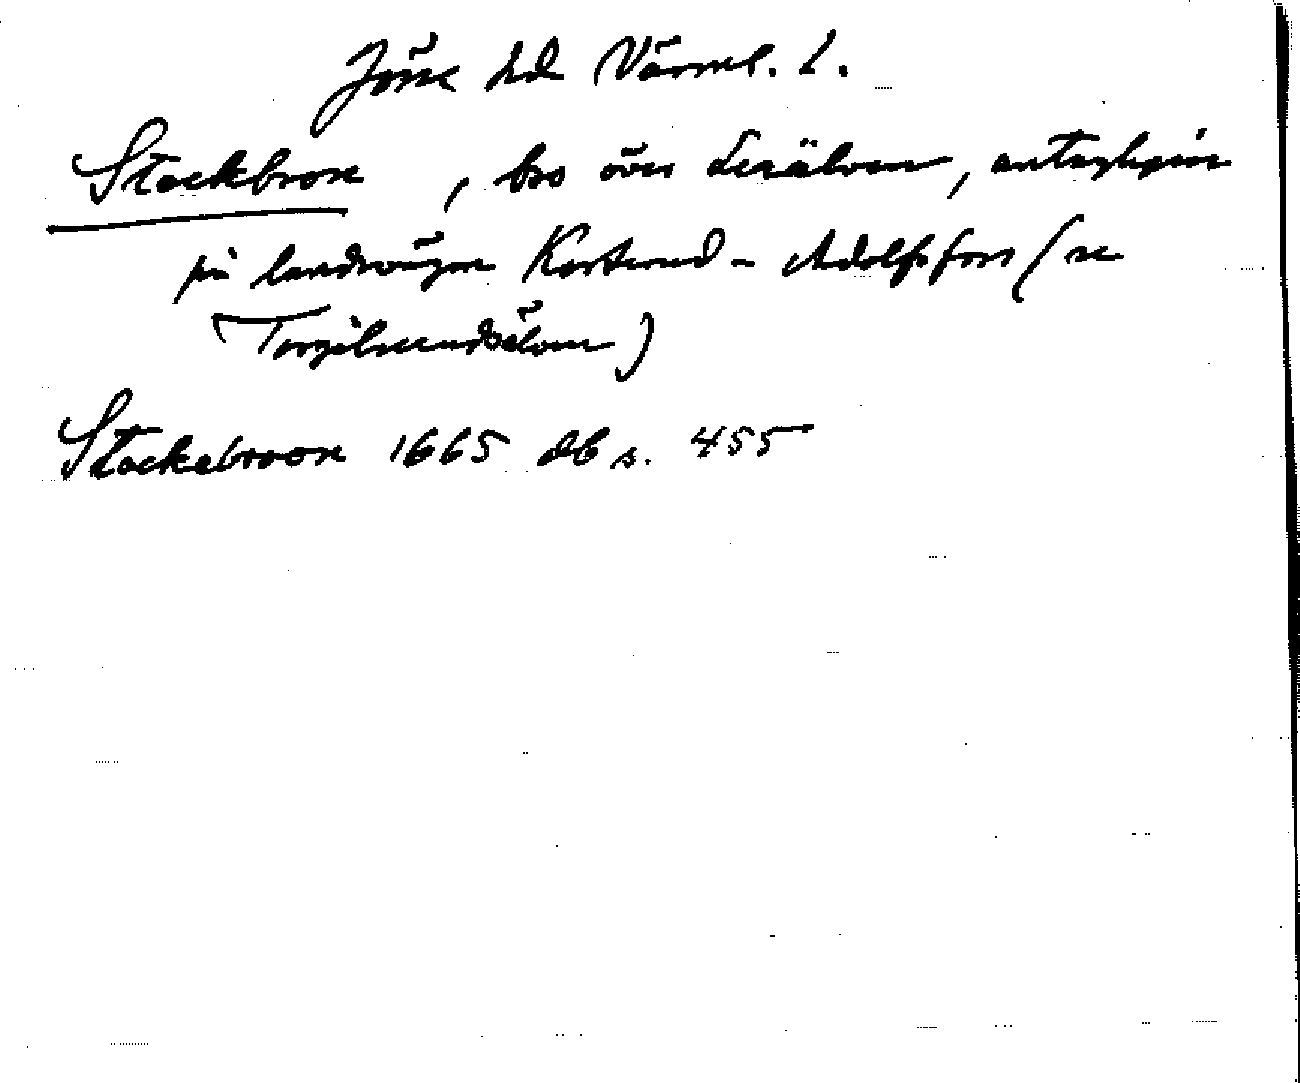 Jösse hd Värml. L.
Stockbron, bro över Lerälven, antagligen
på landsvägen Korterud - Adolfsfors (se
Torgilsrudsälven)
Stockebroon 1665 db s. 455